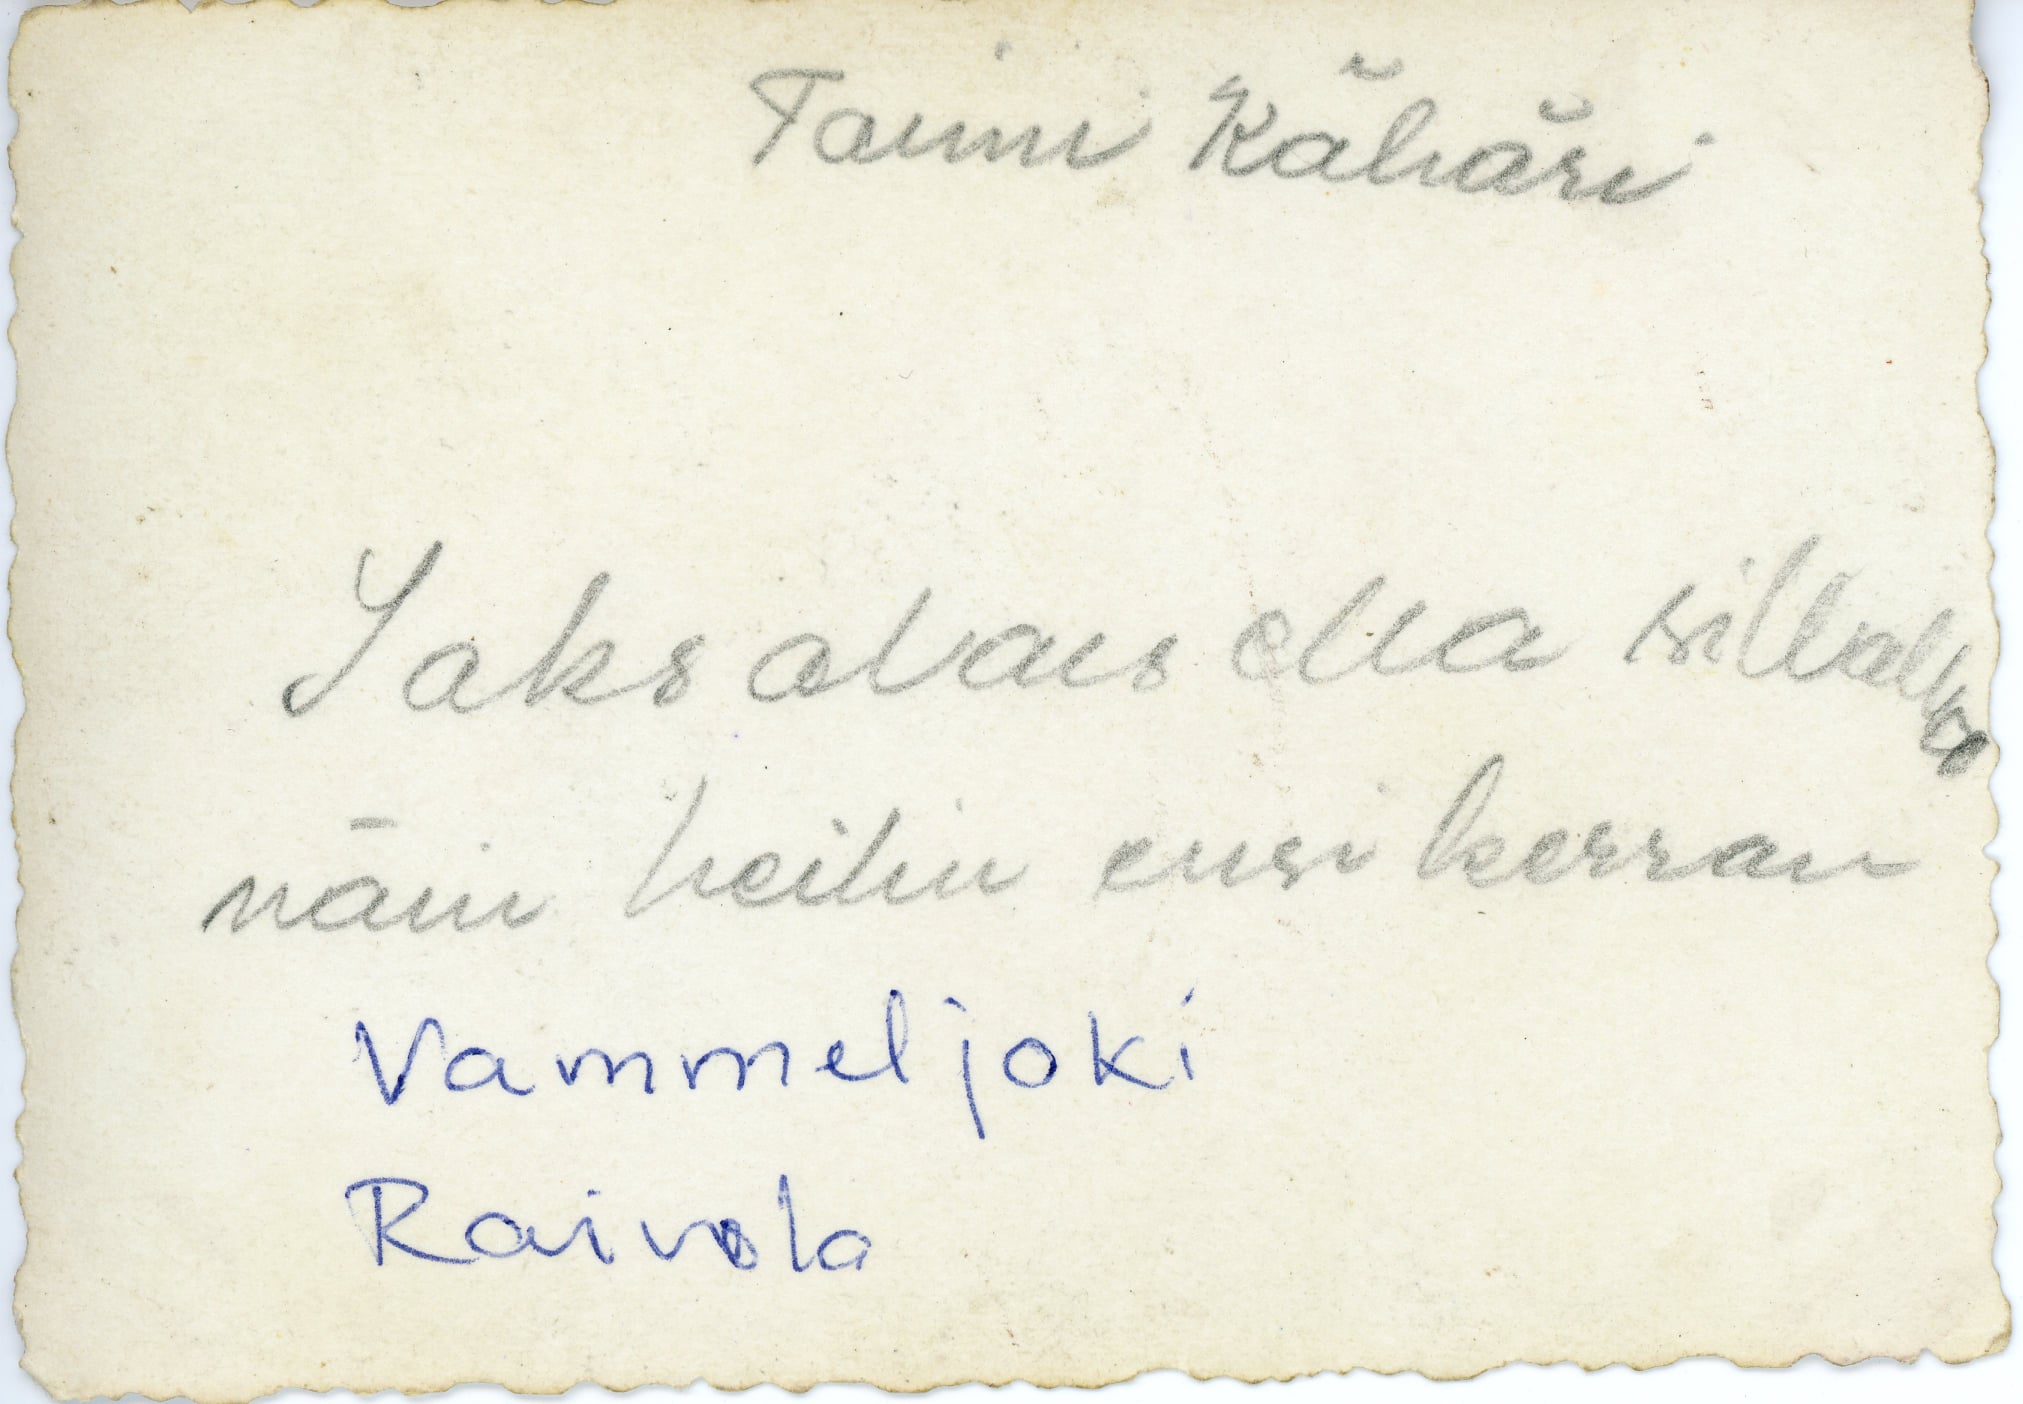 Taimi Kähäri
Saksalaisella sillalla
näin heilin ensi kerran
Vammeljoki
Raivola